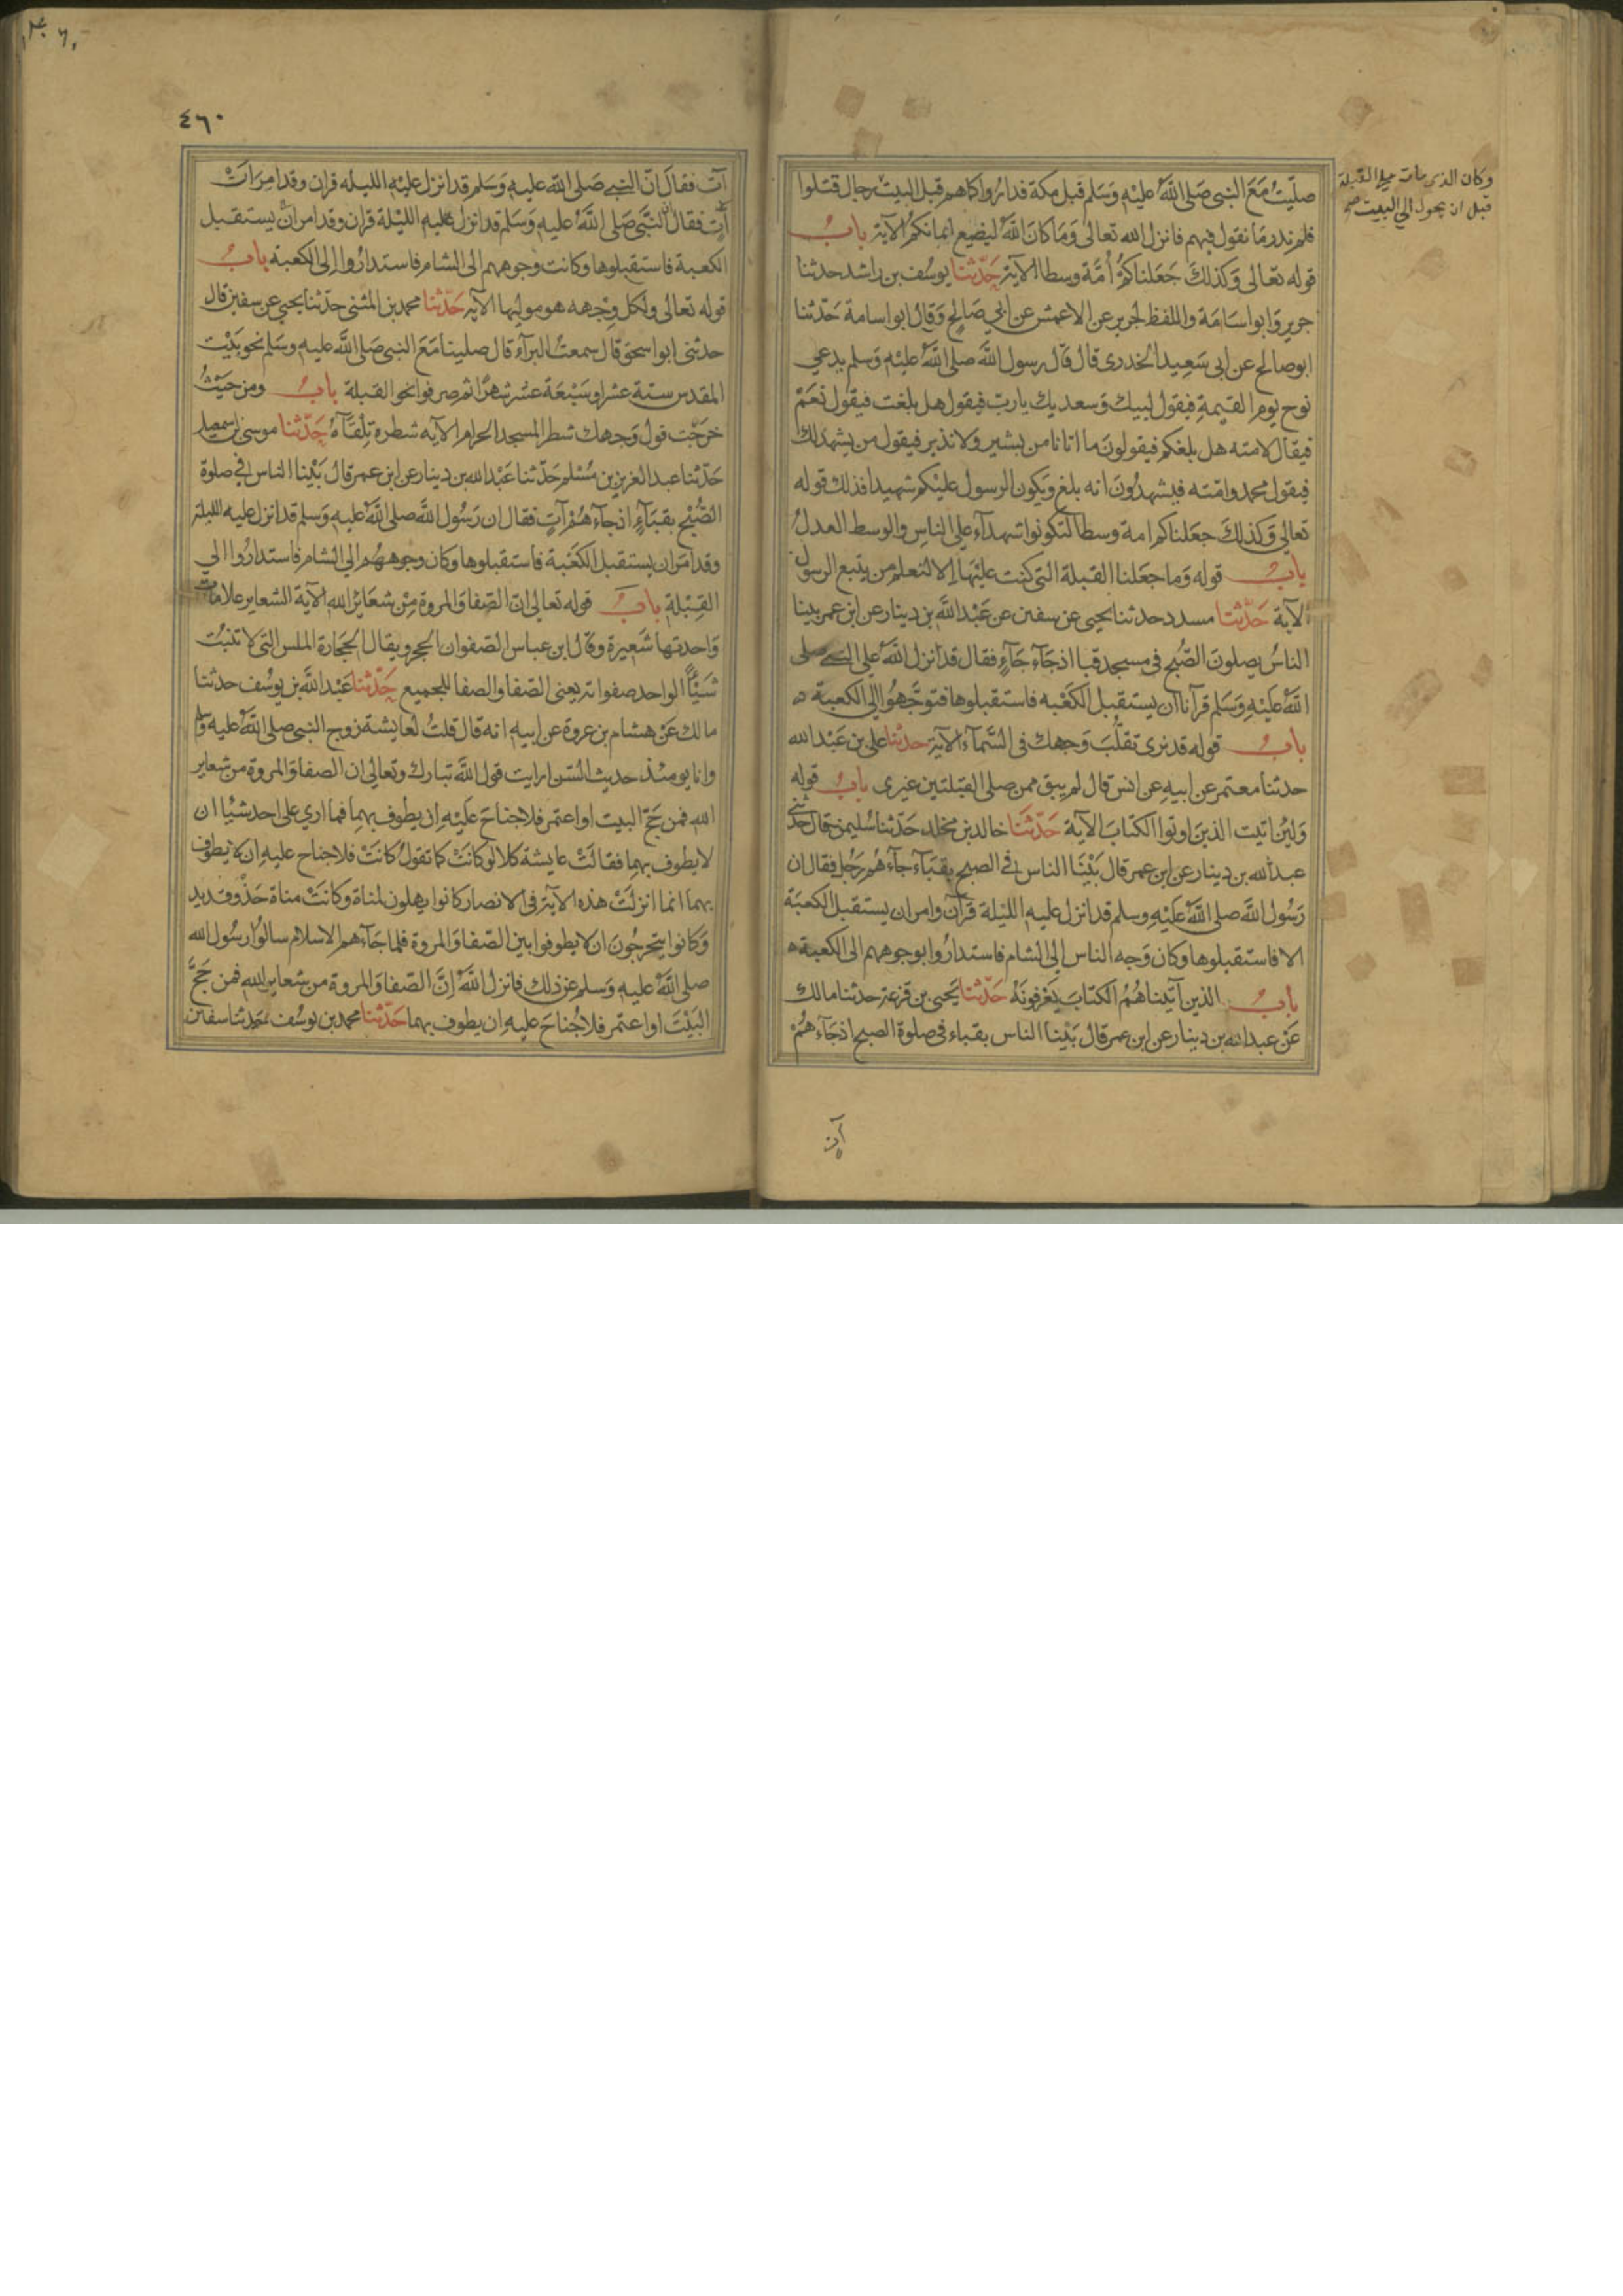 وكان الذي مات على القبلة
قبل ان يحول الى البيت صح
صلّيتُ مَعَ النبى صَلى اللّٰهُ عليْهِ وَسَلم قبل مكة فدارُوا كما هم قبل البيت رجال قتلوا
فلم ندر مَا نقول فيهم فانزل الله تعالى وَمَا كانَ اللّٰهُ ليضيع ايمانكم الآية بابُ
قوله تعالى وَكذلكَ جَعَلناكمُ أُمَّة وسطا الآية حَدّثنا يوسُف بن راشد حدثنا
جرير وَابو اسَامَة واللفظ لجرير عن الاعمش عن ابي صَالح وَقالُ ابو اسامة حَدّثنا
ابو صالح عن ابى سَعِيد الخدرى قالَ قالَ رسول اللّٰه صلى اللّٰهُ عليْه وَسلم يدعى
نوح يوم القيمةِ فيقول لبيك وَسعديك يا ربّ فيقول هل بلغت فيقول نعَمْ
فيقال لامته هل بلغكم فيقولونَ ما اتانا من بشير ولا نذير فيقول من يشهد لك
فيقول محمد وامّته فيشهدُونَ انه بلغ وَيكون الرسول عليْكم شهيدا فذلك قوله
تعالى وَكذلكَ جعَلناكم امة وسطا لتكونوا شهدآء على الناس والوسط العدلُ
بابُ قوله وَما جعَلنا القبلة التى كنت عليْها الا لنعلم من يتبع الرسول
الآية حَدَّثنا مسدد حدثنا يحيى عن سفين عن عَبْد اللّٰه بن دينار عن ابن عمر بينا
الناسُ يصلونَ الصّبح فى مسجد قبا اذ جَآء جَآءٍ فقال قد انزل اللّٰهُ على النبى صلى
اللّٰهُ عَليْهِ وَسَلم قرآنا ان يستقبل الكَعْبه فاستقبلوها فتوجَّهوُا الى الكعبة ه
بابُ قوله قد نرى تقلّبَ وَجهك فى السَّمآء الآية حدّثنا على بن عَبْد الله
حدثنا معتمر عن ابيهِ عن انس قال لم يبق ممن صلى القبلتين غيرى بابُ قوله
وَلئن اتيت الذينَ اوتوا الكتابَ الآية حَدّثَنَا خالد بن مخلد حَدّثنا سُليمن قال حدثنى
عبد اللّٰه بن دينار عن ابن عمر قال بَيْنَا الناس فى الصبح بقبَآء جآءَهُم رَجُل فقال ان
رَسُول اللّٰه صلى اللّٰهُ عَليْهِ وسلم قد انزل عليه الليْلة قرآن وامر ان يستقبل الكعبَة
الا فاستقبلوها وكان وَجه الناس الى الشام فاستدارُوا بوجوههم الى الكعبة ه
بابُ الذين آتيناهُمُ الكتابَ يَعْرفونَهُ حَدّثنا يَحيى بن قزعة حدثنا مالك
عَنْ عبد الله بن دينار عن ابن عمر قالَ بَيْنا الناس بقباء فى صلوة الصبح اذ جَآءهُمْ
آت
٤٦٠
آت فقالَ انّ النبى صَلى اللّٰه عليهِ وَسَلم قد انزل عليْهِ الليله قران وقد امر ات
آتٍ فقال ان النَّبى صَلى اللّٰهُ عليهِ وَسَلم قد انزل عليهِ الليْلة قران وقد امر ان يستقبل
الكعبة فاستقبلوها وكانت وجوههم الى الشام فاستدارُوا الى الكعبة بابُ
قوله تعالى ولكل وِجْهه هو موليها الآيه حَدّثنا محمد بن المثنى حدّثنا يحيى عن سفين قال
حدثنى ابو اسحق قال سمعتُ البرآء قال صلينا مَعَ النبى صَلى اللّٰهُ عليهِ وسَلم نحو بَيْت
المقدس ستة عشر او سَبْعَة عشر شهرًا ثم صرفوا نحو القبلة بابُ ومن حَيثُ
خرَجْتَ فول وَجهك شطر المسجد الحرام الآيه شطره تِلْقآءهُ حَدّثنا موسى بن اسمعيل
حَدّثنا عبد العزيز بن مُسْلم حَدّثنا عَبْد الله بن دينار عن ابن عمر قالُ بَيْنا الناس فى صلوة
الصُّبْحِ بقبَآءٍ اذ جآءهُمْ آتٍ فقال ان رَسُول اللّٰه صلى اللّٰهُ عليْه وَسلم قد انزل عليه الليلة
وقد امَرَ ان يستقبل الكَعْبة فاستقبلوها وكان وجوههُم الى الشام فاستدارُوا الى
القِبْلةِ بابُ قوله تعالى انّ الصّفا وَالمروة مِنْ شعَائر الله الآية الشعاير علامات
وَاحدتها شَعِيرة وقالُ ابن عباس الصّفوان الحجر ويقال الحجَارة الملس التى لا تنبُت
شَيْئًا الواحد صفوانه يعنى الصّفا والصفا للجميع حَدّثنا عَبْد اللّٰه بن يوسُف حدثنا
مالك عَنْ هشام بن عروة عن ابيهِ انه قال قلتُ لعايشة زوج النبى صلى اللّٰهُ عليه وسلم
وانا يومئذ حديث السّن ارايت قول اللّٰه تبارك وتعالى ان الصفا وَالمروة من شعاير
اللّٰه فمن حَجّ البيت او اعتمر فلا جناحَ عَليْهِ ان يطوف بهما فما ارى على احد شيْئا ان
لا يطوف بهما فقالَتْ عايشة كلا لو كانَتْ كما تقولُ كانَتْ فلا جناح عليهِ ان لا يطوف
بهما انما انزلَتْ هذه الآية فى الانصار كانوا يهلون لمناة وكانَتْ مناة حَذْو قديد
وَكانوا يتحرجُونَ ان لا يطوفوا بين الصّفا وَالمروة فلما جَآءهم الاسلام سالوُا رسُول الله
صلى اللّٰهُ عليهِ وَسلم عن ذلك فانزل اللّٰهُ اِنَّ الصّفا وَالمروة من شعاير اللّٰهِ فمن حَجَّ
البَيْتَ او اعتمر فلا جُناحَ عليهِ ان يطوف بهما حَدّثنا محمد بن يوسُف حَدثنا سفين